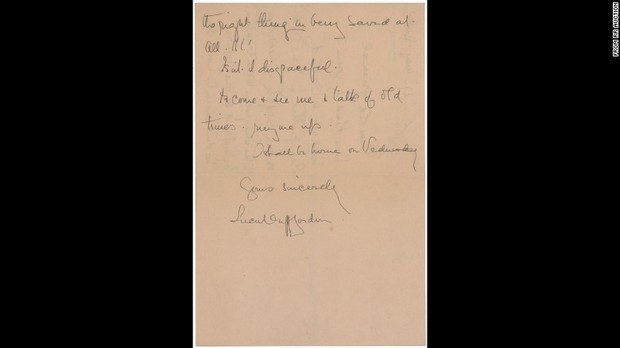 the right thing in being saved at
all.!!!
Isn't it disgraceful.
Do come & see me & talk of old
times. ring me up.
I shall be home on Wednesday
Yours sincerely
Lucy Duff Gordon.
FROM RR AUCTION